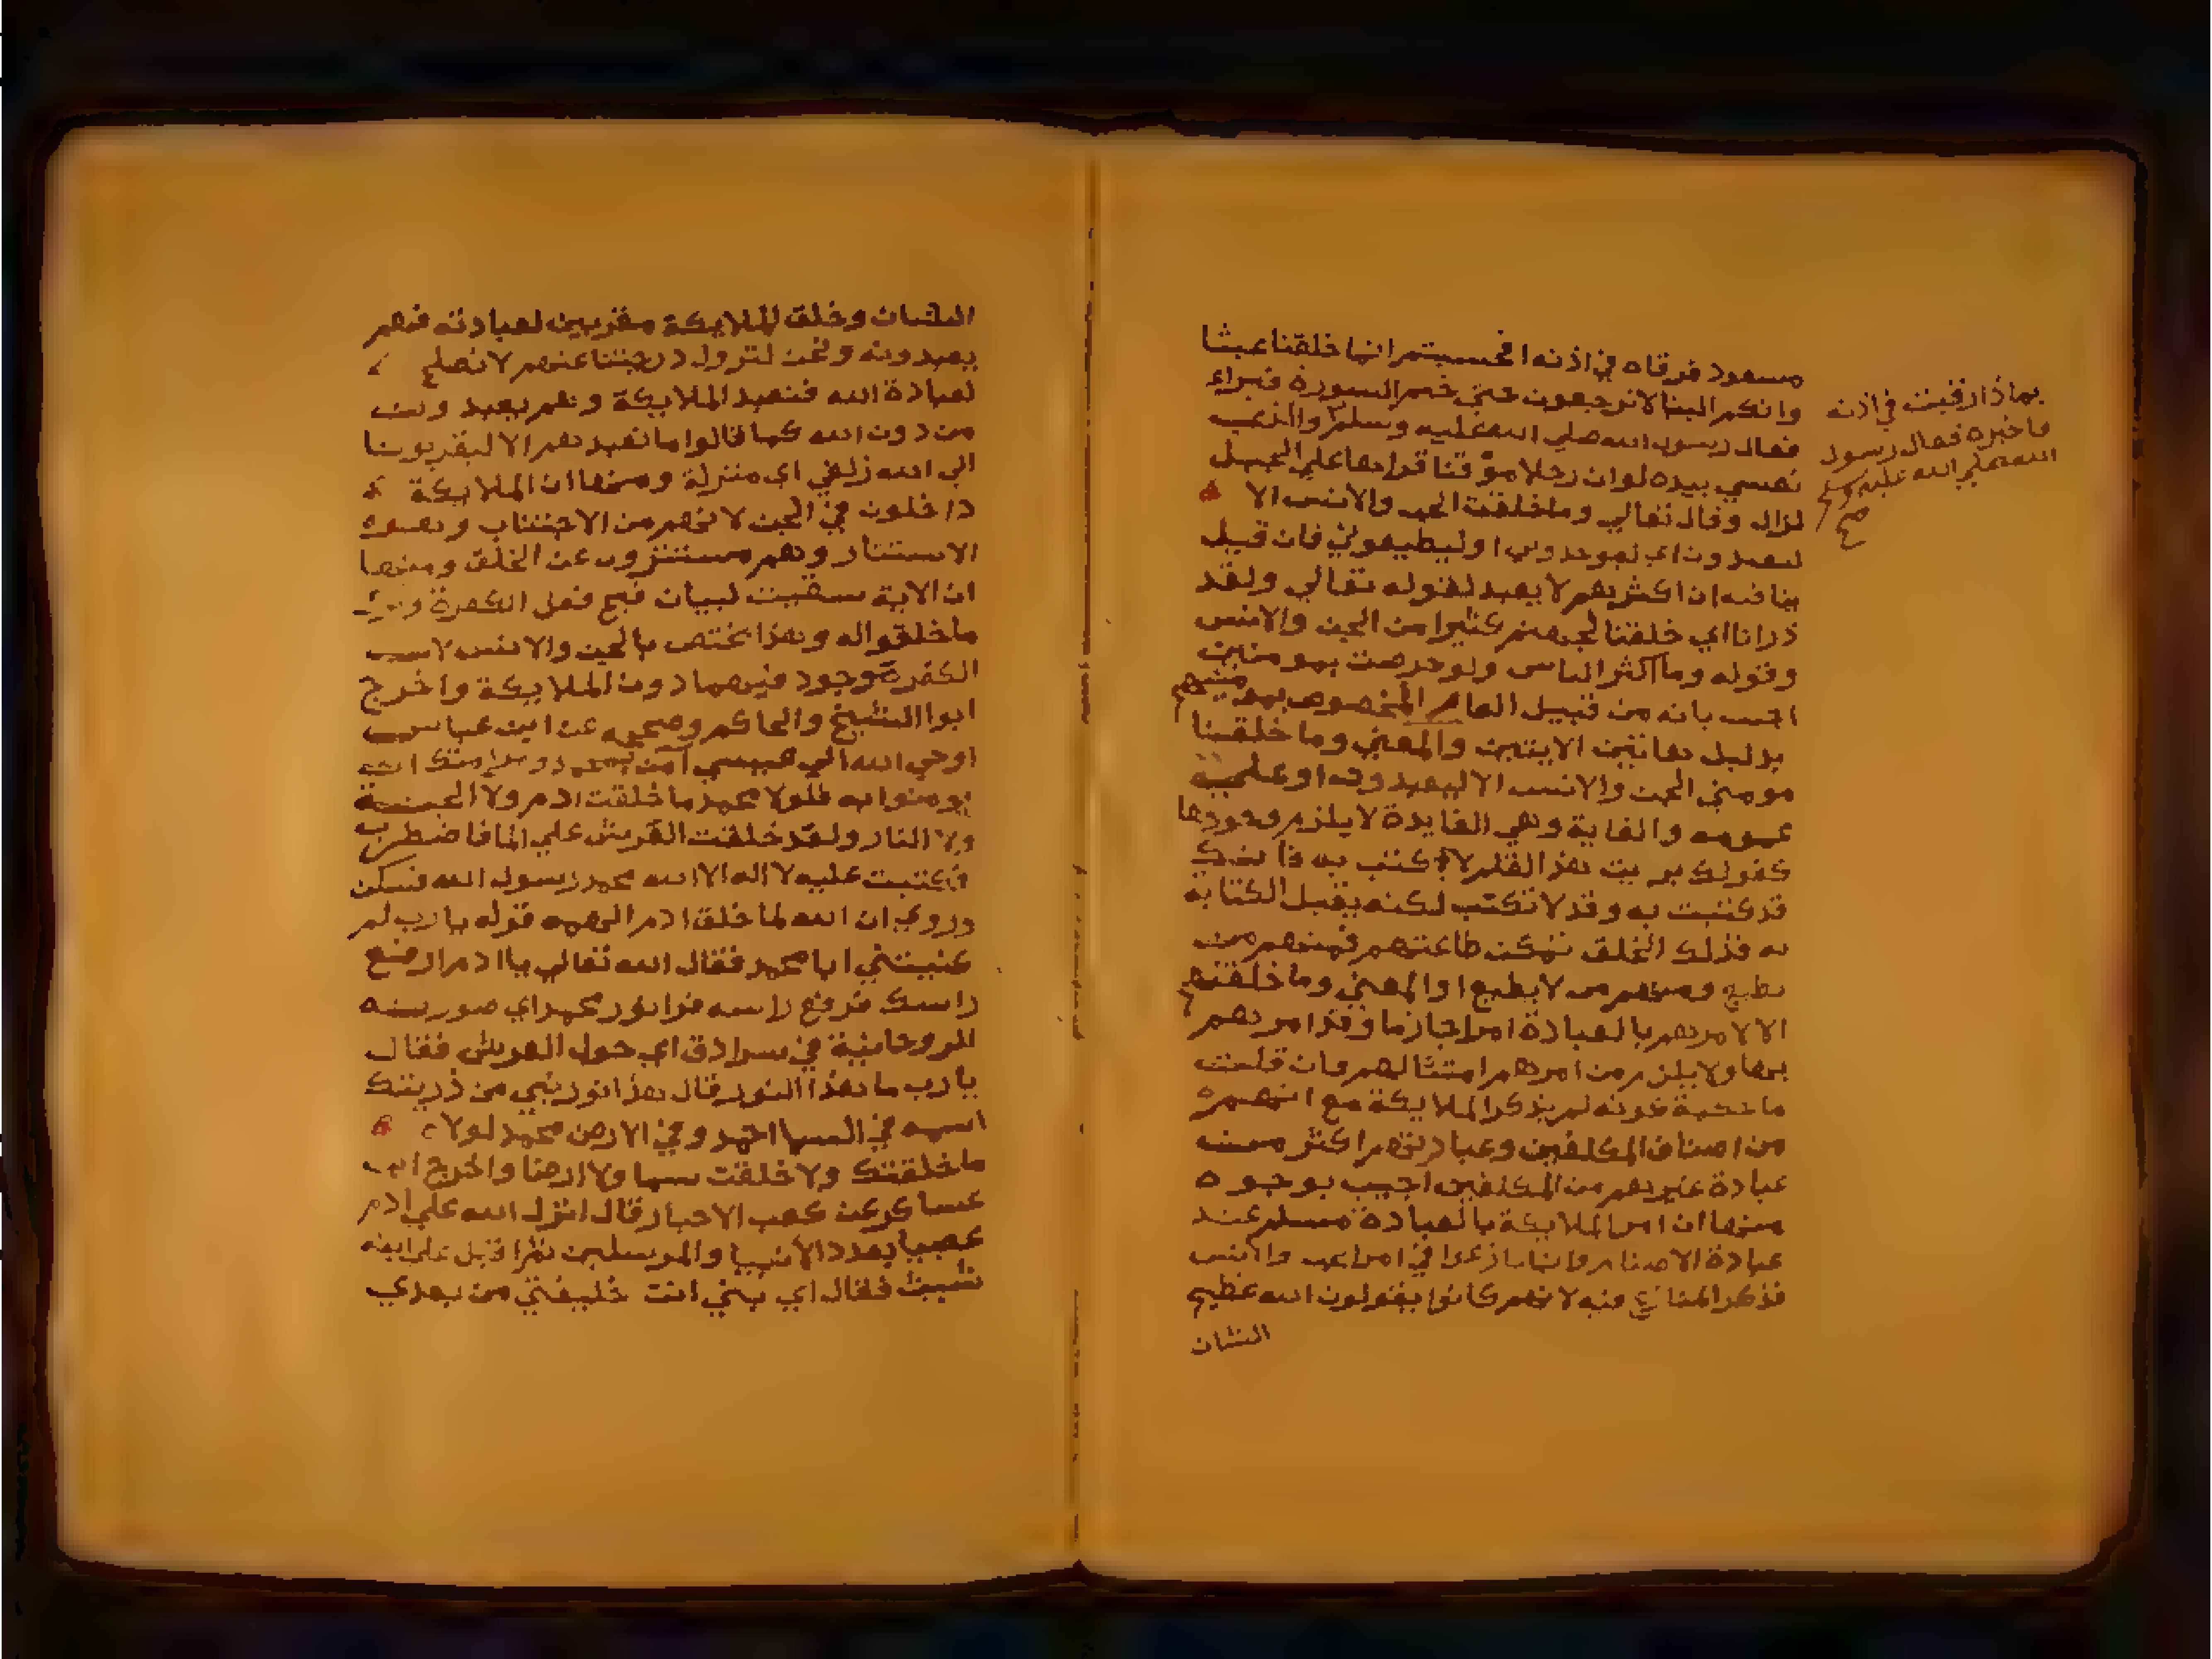 مسعود فرقاه في اذنه افحسبتم انما خلقناعبثا
وانكم الينا لاترجعون حتي ختم السورة فبراء
فقال رسول الله صلي الله عليه وسلم والذي
نفسي بيده لوان رجلا موقنا قراها علي الجبل
لزال وقال تعالي وما خلقت الجن والانس الا
ليعبدون اي ليوحدوني اوليطيعوني فان قيل
ينافيه ان اكثرهم لا يعبد لقوله تعالي ولقد
ذرانا اي خلقنا لجهنم كثيرا من الجن والانس
وقوله وما اكثر الناس ولو حرصت بمومنين
اجيب بانه من قبيل العام المخصوص بمومنيهم
بدليل هاتين الايتين والمعني وما خلقنا
مومني الجن والانس الا ليعبدون او علي
عمومه والغاية وهي الفايدة لا يلزم وجودها
كقولك بريت هذا القلم لاكتب به فانك
قد كتبت به وقد لا تكتب لكنه يقبل الكتابة
به فذلك الخلق تمكن طاعتهم فمنهم من
يطيع ومنهم من لا يطيع او المعني وما خلقتهم
الا لامرهم بالعبادة امرا جازما وقد امرهم
بها ولا يلزم من امرهم امتثالهم فان قلت
ما حكمة كونه لم يذكر الملايكة مع انهم
من اصناف المكلفين وعبادتهم اكثر من
عبادة غيرهم من المكلفين اجيب بوجوه
منها ان امر الملايكة بالعبادة مسلم عند
عبادة الاصنام وانما نازعوا في امر الجن والانس
فذكر المتنازع فيه لانهم كانوا يقولون الله عظيم
الشان
بماذا رقيت في اذنه
فاخبره فقال رسول
الله صلي الله عليه وسلم
صح
الشان وخلق الملايكة مقربين لعبادته فهم
يعبدونه ونحن لنزول درجتنا عنهم لا نصلح
لعبادة الله فنعبد الملايكة وهم يعبدون
من دون الله كما قالوا ما نعبدهم الا ليقربونا
الي الله زلفي اي منزلة ومنها ان الملايكة
داخلون في الجن لانهم من الاجتناب وهو
الاستتار وهم مستترون عن الخلق ومنها
ان الاية سقيت لبيان قبح فعل الكفرة
ما خلقوا له وهذا يختص بالجن والانس لان
الكفر موجود فيهما دون الملايكة واخرج
ابوا الشيخ والحاكم وصححه عن ابن عباس
اوحي الله الي عيسي امن بمحمد ومر امتك ان
يومنوا به فلولا محمد ما خلقت ادم ولا الجنة
ولا النار ولقد خلقت العرش علي الما فاضطرب
فكتبت عليه لا اله الا الله محمد رسول الله فسكن
وروي ان الله لما خلق ادم الهمه قوله يارب لم
كنيتني ابا محمد فقال الله تعالي يا ادم ارفع
راسك فرفع راسه فرا نور محمد اي صورته
الروحانية في سرادق اي حول العرش فقال
يارب ما هذا النور قال هذا نور نبي من ذريتك
اسمه في السما احمد وفي الارض محمد لولاه
ما خلقتك ولا خلقت سما ولا ارضا واخرج ابن
عساكر عن كعب الاحبار قال انزل الله علي ادم
عصيا بعدد الانبيا والمرسلين ثم اقبل علي ابنه
شيث فقال اي بني انت خليفتي من بعدي